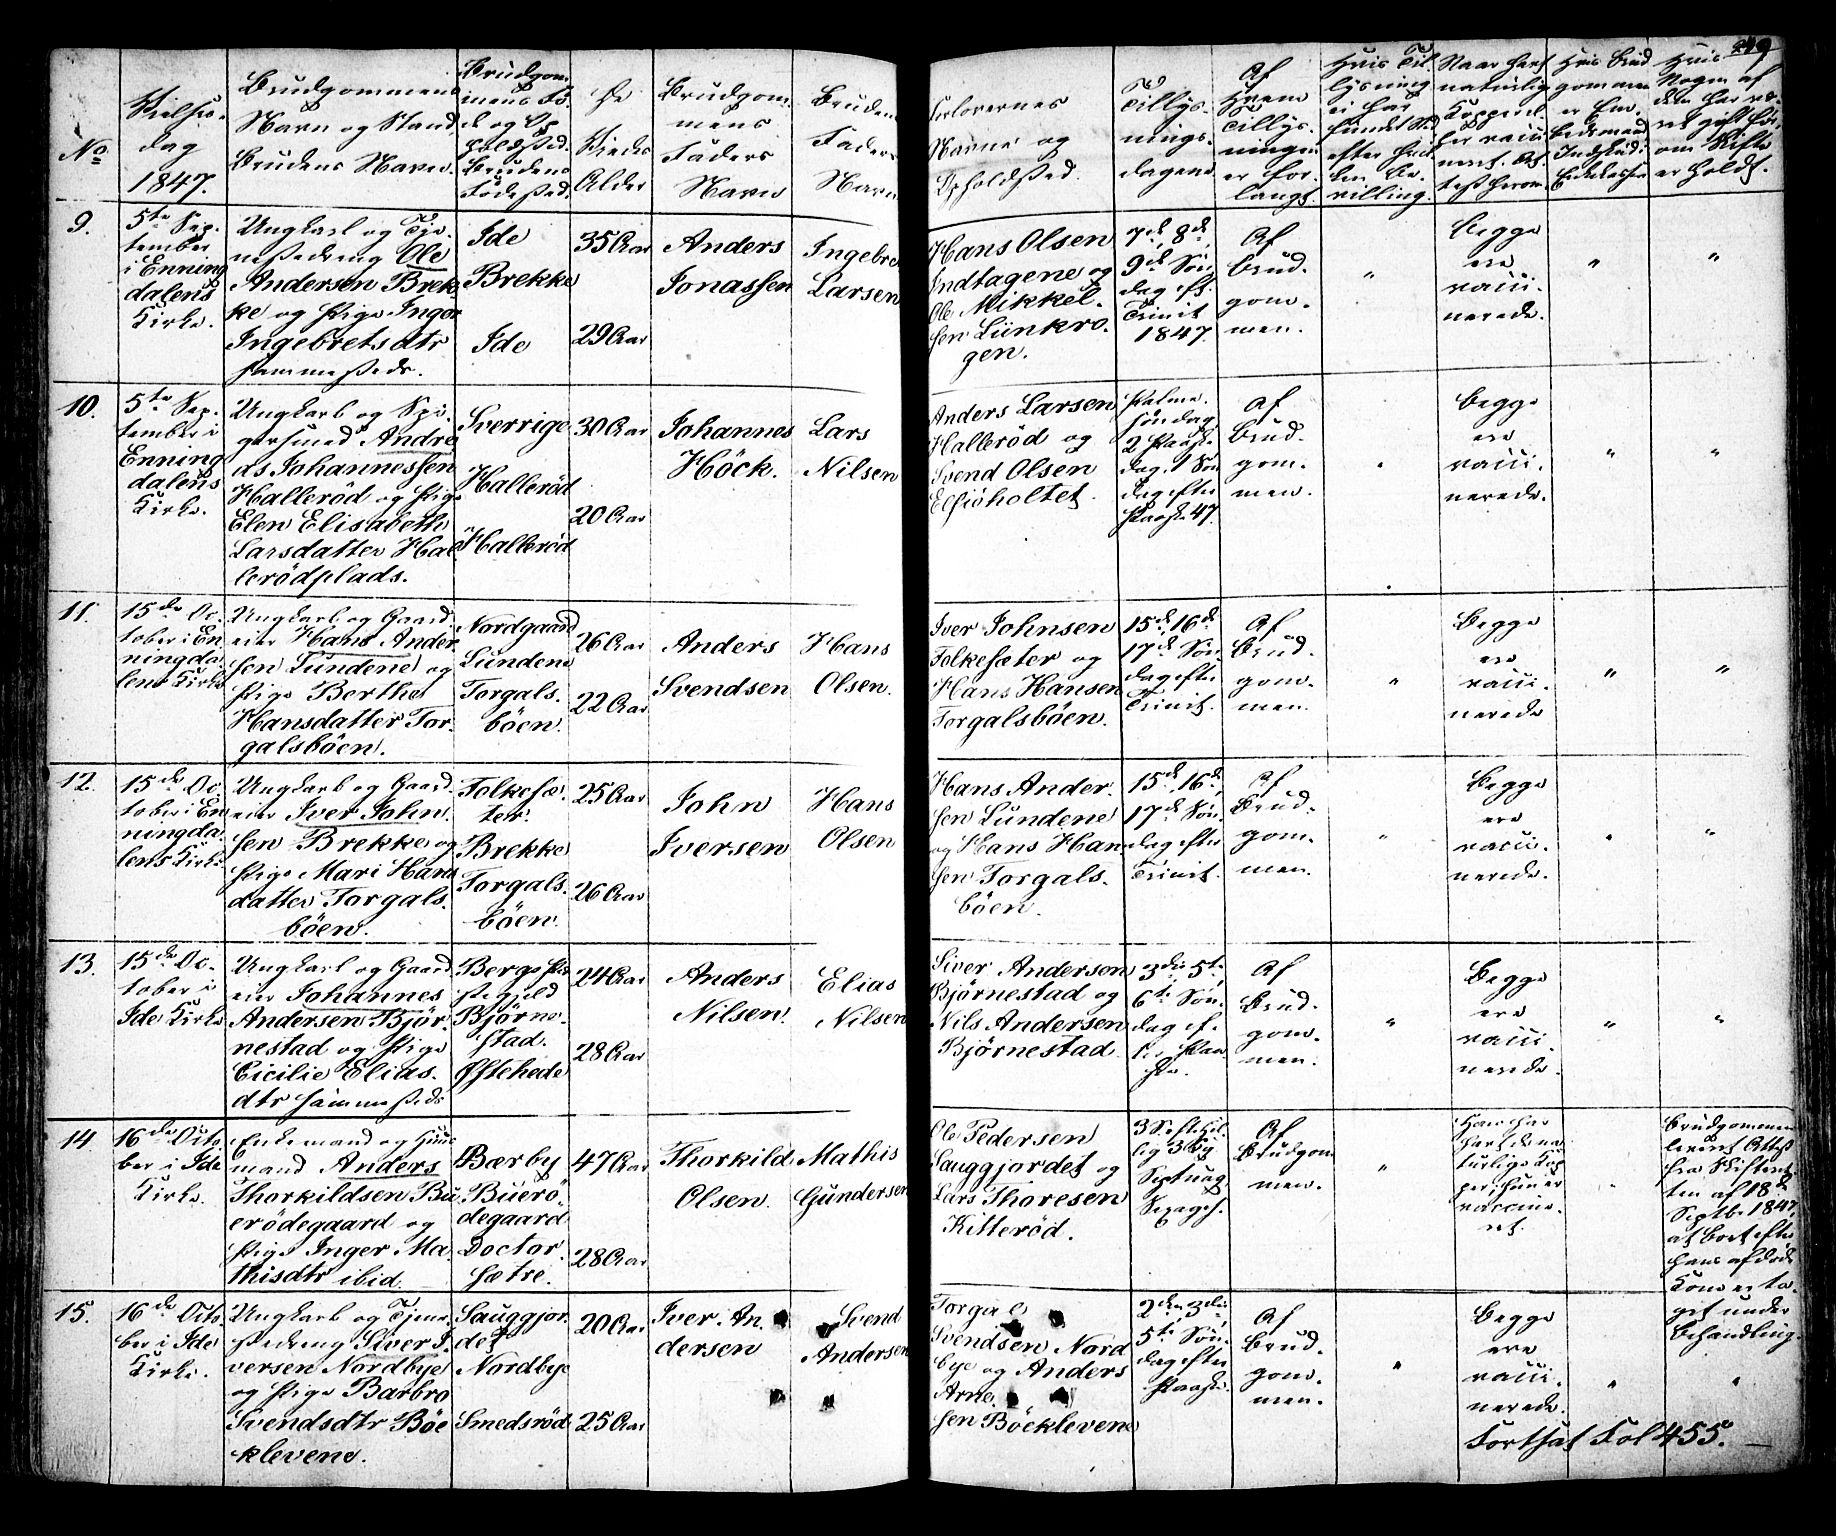 249
No
Vielses-
dag
1847.
Brudgommens
Navn og Stand
Brudens Navn.
Brudgom-
mens Fö-
de og Op
holdssted.
Brudens
Födested.
De
Viedes
Alder
Brudgom-
mens
Faders
Navn
Brudens
Faders
Navn
Forlovernes
Navne og
Opholdssted.
Tillys-
nings-
dagene
Af
Hvem
Tillys-
ningen
er for-
langt.
Hvis Til
lysning
ei har
fundet Sted
efter hvil
ken Be-
villing.
Naar havt
naturlig
Kopper el-
ler vacci
neret. At-
test herom
Hvis Brud
gommen
er En-
kemand
Hvis
Nogen af
dem har væ-
ret gift før,
om Skifte
er holdt.
9.
5te Sep-
tember
i Enning
dalens
Kirke.
Ungkarl og Tje-
nestedreng Ole
Andersen Brek
ke og Pige Inger
Ingebretsdtr
sammesteds.
Ide
Brekke
Ide
35 Aar
29 Aar
Anders
Jonassen
Ingebre
Larsen
Hans Olsen
Indtagene og
Ole Mikkel-
sen Liinkro-
gen.
7de, 8de,
9de Søn
dag eft
Trinit
1847.
Af
Brud-
gom-
men.
"
Begge
ere
vacci-
nerede.
"
"
10.
5te Sep-
tember i
Enning
dalens
Kirke.
Ungkarl og Spi-
gersmed Andre
as Johannessen
Hallerød og Pige
Elen Elisabeth
Larsdatter Hal
lerödplads.
Sverrige
Hallerød
Hallerød
30 Aar
20 Aar
Johannes
Höck.
Lars
Nilsen
Anders Larsen
Hallerød og
Svend Olsen
Elsjöholtet.
Palme-
søndag
2 Paaske-
dag, 1 Søn
dag efter
Paaske 47.
Af
Brud-
gom-
men.
"
Begge
ere
vacci-
nerede.
"
"
11.
15de Oc-
tober i En
ningda-
lens Kirke
Ungkarl og Gaard-
eier Hans Ander
sen Lundene og
Pige Berthe
Hansdatter Tor-
galsböen.
Nordgaard
Lundene
Torgals-
böen.
26 Aar
22 Aar
Anders
Svendsen
Hans
Olsen.
Iver Johnsen
Folkesæter og
Hans Hansen
Torgalsböen.
15de, 16de
17de Søn-
dag efter
Trinit.
Af
Brud-
gom-
men.
"
Begge
ere
vacci-
nerede
"
"
12.
15de Oc-
tober i En
ningda-
lens Kirke
Ungkarl og Gaard-
eier Iver John-
sen Brekke og
Pige Mari Hans
datter Torgals-
böen.
Folkesæ-
ter.
Brekke
Torgals-
böen.
25 Aar
26 Aar
John
Iversen
Hans
Olsen
Hans Ander-
sen Lundene
og Hans Han
sen Torgals-
böen.
15de, 16de,
17de Søn-
dag efter
Trinit.
Af
Brud-
gom-
men.
"
Begge
ere
vacci-
nerede.
"
"
13.
15de Oc-
tober i
Ide Kirke
Ungkarl og Gaard
eier Johannes
Andersen Björ-
nestad og Pige
Cicilie Elias-
dtr sammesteds
Bergs Præ
stegjeld
Björne-
stad.
Østehede
24 Aar
28 Aar
Anders
Nilsen.
Elias
Nilsen
Siver Andersen
Bjørnestad og
Nils Andersen
Bjørnestad.
3die, 5te,
6te Søn-
dag ef-
ter Paa-
ske.
Af
Brud-
gom-
men.
"
Begge
ere
vacci-
nerede.
"
"
14
16de Octo
ber i Ide
Kirke.
Enkemand og Huus
mand Anders
Thorkildsen Bu
erödegaard og
Pige Inger Ma-
thisdtr ibid.
Bærby
Buerö-
degaard
Doctor-
sætre.
47 Aar
28 Aar
Thorkild
Olsen.
Mathis
Gundersen
Ole Pedersen
Sauggjordet og
Lars Thoresen
Kitterød.
Septuag
Sexages.
Af
Brudgom
men.
"
Han har
havt de na-
turlige Kop
per, hun er
vaccine-
ret.
"
Brudgommen
leveret Attest
fra Skifteret-
ten af 18de
Septbr 1847,
at Boet efter
hans afdøde
Kone er ta-
get under
Behandling.
15.
16de Octo
ber i Ide
Kirke.
Ungkarl og Tjene
stedreng Siver I-
versen Nordbye
og Pige Barbro
Svendsdtr Böe
klevene.
Sauggjor-
det
Nordbye
Smedsröd
20 Aar
25 Aar
Iver An-
dersen
Svend
Andersen
Torgie
Svendsen Nord
bye og Anders
Arne
sen Böcklevene
2den, 3die,
5te Søn-
dag efter
Paaske.
Af
Brud-
gom-
men.
"
Begge
ere
vacci-
nerede.
"
"
Fortsat Fol 455.